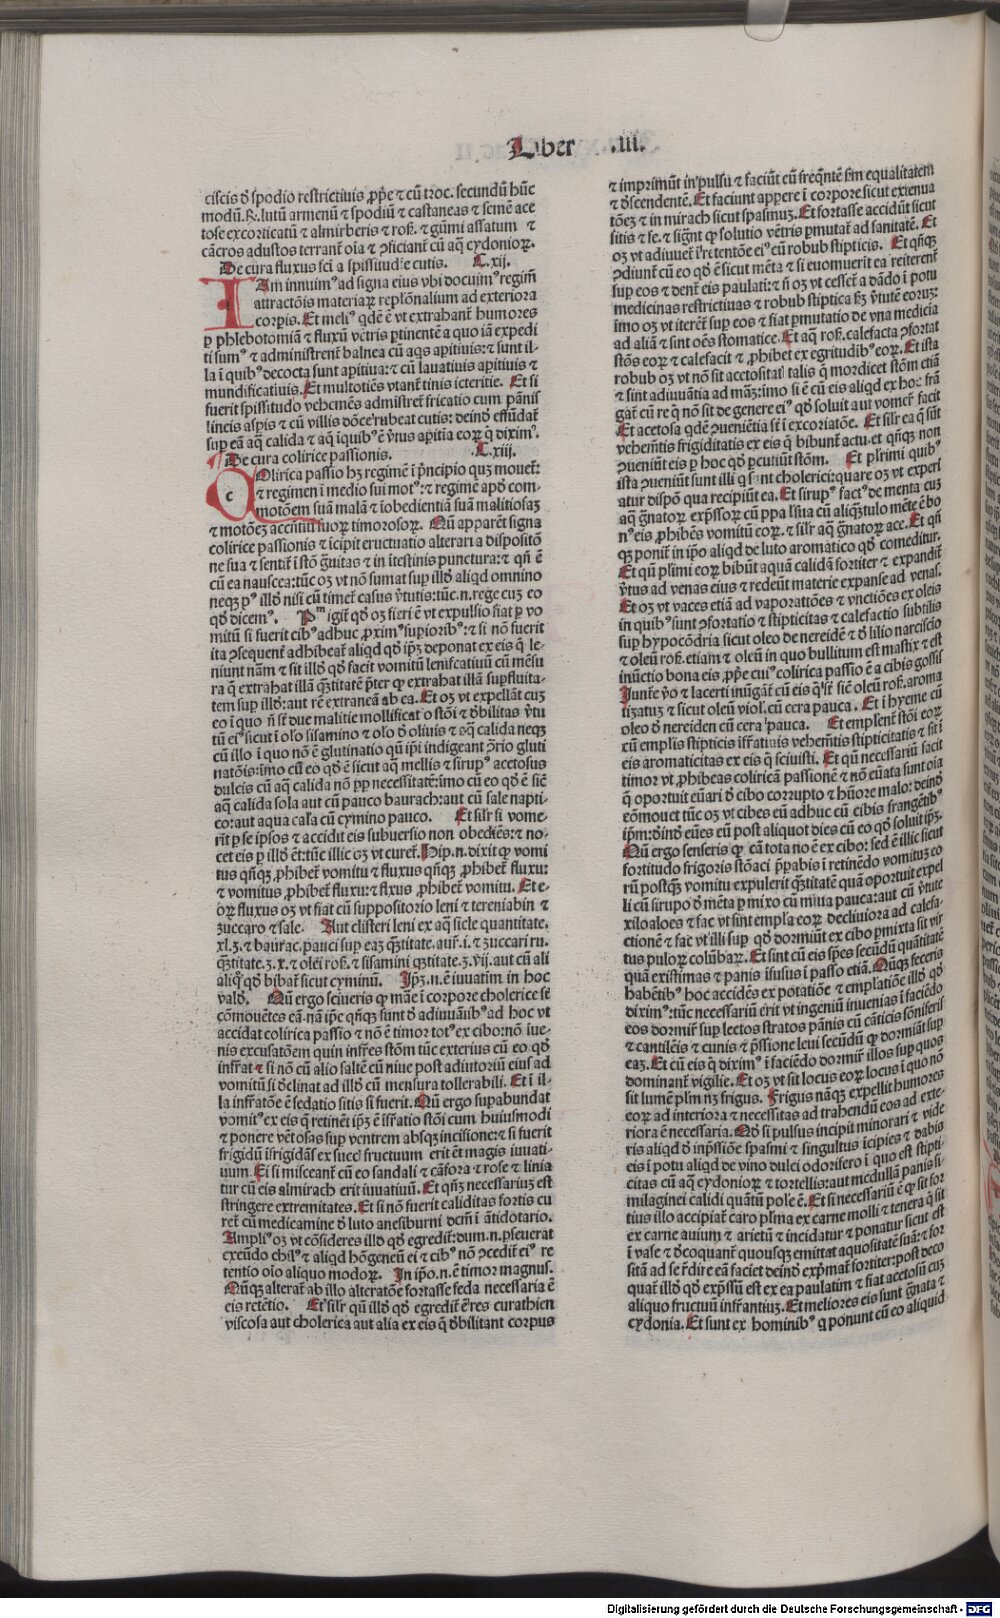 Liber .III.
cisceis ꝺ̄ spodio restrictiuis ꝓp̄e ⁊ cū troc. secundū hūc
modū. R. lutū armenū ⁊ spodiū ⁊ castaneas ⁊ semē ace
tose excorticatū ⁊ almirberis ⁊ roſ. ⁊ gūmi assatum ⁊
cācros adustos terrant̄ oīa ⁊ ꝯficiant̄ cū aq̄ cydonioꝝ.
De cura fluxus sci a spissitudīe cutis. C.xij.
IAm innuimꝰ ad signa eius vbi docuimꝰ regim̄
attractōis materiaꝝ replōnalium ad exteriora
corpis. Et meliꝰ qdē ē vt extrahant̄ humores
p phlebotomiā ⁊ fluxū vētris ꝑtinentē a quo iā expedi
ti sumꝰ ⁊ administrent̄ balnea cū aqs apitiuis: ⁊ sunt il-
la ī quibꝰ decocta sunt apitiua: ⁊ cū lauatiuis apitiuis ⁊
mundificatiuis. Et multotiēs vtant̄ tinis icteritie. Et si
fuerit spissitudo vehemēs admistret̄ fricatio cum pānis
lineis aspis ⁊ cū villis dōce rubeat cutis: deinꝺ effūdat̄
sup eā aq̄ calida ⁊ aq̄ ī quibꝰ ē ꝟtus apitia coꝝ q̄ diximꝰ.
De cura colirice passionis. C.xiij.
COlirica passio hꝫ regimē ī pⁿcipio quꝫ mouet̄:
⁊ regimen ī medio sui motꝰ: ⁊ regimē apd com-
motōem suā malā ⁊ īobedientiā suā malitiosaꝫ
⁊ motōeꝫ accītiū suoꝝ timorosoꝝ. Qū apparēt signa
colirice passionis ⁊ īcipit eructuatio alterari a dispositō
ne sua ⁊ sentit̄ ī stō gͣuitas ⁊ in ītestinis punctura: ⁊ qn̄ ē
cū ea nauscea: tūc oꝫ vt nō sumat sup illō aliqd omnino
neqꝫ pꝰ illō nisi cū timet̄ casus ꝟtutis: tūc.n.rege cuꝫ eo
qō dicemꝰ. Pᵐ igit̄ qō oꝫ fieri ē vt expulsio fiat p vo
mitū si fuerit cibꝰ adhuc ꝓximꝰ supioribꝰ: ⁊ si nō fuerit
ita ꝯsequent̄ adhibeat̄ aliqd qō ip̄ꝫ deponat ex eis q̄ le-
niunt nām ⁊ sit illō qō facit vomitū lenificatiuū cū mēsu
ra q̄ extrahat illā qͣtitatē p̄ter qꝫ extrahat illā supfluita-
tem sup illō: aut rē extraneā ab ea. Et oꝫ vt expellāt cuꝫ
eo ī quo n̄ st̄ due malitie mollificatio stōi ⁊ ꝺbilitas ꝟtu
tū eiꝰ sicut ī olo sisamino ⁊ olo ꝺ oliuis ⁊ cū aq̄ calida neqꝫ
cū illo ī quo nō ē glutinatio qn̄ ipi indigeant ꝯrio gluti
natōis: imo cū eo qō ē sicut aq̄ mellis ⁊ sirupꝰ acetosus
dulcis cū aq̄ calida nō pp necessitatē: imo cū eo qō ē sic̄
aq̄ calida sola aut cū pauco baurach: aut cū sale napti-
co: aut aqua cala cū cymino pauco. Et silr si vome-
rit p se ipsos ⁊ accidit eis subuersio non obediēs: ⁊ no-
cet eis p illō ēt: tūc illic oꝫ vt curet̄. Hip.n.dixit qꝫ vomi
tus qn̄qꝫ ꝓhibet̄ vomitu ⁊ fluxus qn̄qꝫ ꝓhibet̄ fluxu:
⁊ vomitus ꝓhibet̄ fluxu: ⁊ flxus ꝓhibet̄ vomitu. Et e-
oꝝ fluxus oꝫ vt fiat cū suppositorio leni ⁊ tereniabin ⁊
zuccaro ⁊ sale. Aut clisteri leni ex aq̄ sicle quantitate.
xl.ʒ. ⁊ baurac. pauci sup eaꝫ qͣtitate. aur̄.i. ⁊ zuccari ru.
qͣtitate.ʒ.x. ⁊ olei roſ. ⁊ sisamini qͣtitate.ʒ.vij. aut cū ali
aliqͦ qō bibat̄ sicut cyminū. Ip̄ꝫ.n.ē iuuatim in hoc
valꝺ. Qū ergo scīueris qꝫ māe ī corpore cholerice st̄
cōmouētes eā. nā ip̄e qn̄qꝫ sunt ꝺ adiuuātibꝰ ad hoc vt
accidat colirica passio ⁊ nō ē timor totꝰ ex cibo: nō iue-
nis excusatōem quin infr̄es stōm tūc exterius cū eo qō
infr̄at ⁊ si nō cū alio saltē cū niue post adiutoriū eius ad
vomitū si ꝺclinat ad illō cū mensura tollerabili. Et ī il-
la infr̄atōe ē sedatio sitis si fuerit. Qū ergo supabundat
vomitꝰ ex eis q̄ retinēt ip̄ꝫ ē īfr̄atio stōi cum huiusmodi
⁊ ponere vētosas sup ventrem absqꝫ incisione: ⁊ si fuerit
frigidū īfrigidās ex succ̄ fructuum erit ēt magis iuuati-
uum. Ei si misceant̄ cū eo sandali ⁊ cāfora ⁊ rose ⁊ linia
tur cū eis almirach erit iuuatiuū. Et qn̄ꝫ necessariuꝫ est
stringere extremitates. Et si nō fuerit caliditas fortis cu
ret̄ cū medicamine ꝺ luto anesiburni dcm̄ ī ātidotario.
Ampliꝰ oꝫ vt cōsideres illō qō egredit̄: dum.n.pseuerat
exeūdo chilꝰ ⁊ aliqd hōgeneū ei ⁊ cibꝰ nō ꝯcedit̄ eiꝰ re
tentio oīo aliquo modoꝝ. In ipo.n.ē timor magnus.
Qūqꝫ alterat̄ ab illo alteratōe fortasse feda necessaria ē
eis retētio. Et silr qū illō qō egredit̄ ē res curathien
viscosa aut cholerica aut alia ex eis q̄ ꝺbilitant corpus
⁊ imprimūt in pulsu ⁊ faciūt eū freqn̄tē ẜm equalitatem
⁊ ꝺscendentē. Et faciunt appere ī corpore sicut extenua
tōeꝫ ⁊ in mirach sicut spasmuꝫ. Et fortasse accidūt sicut
sitis ⁊ fe. ⁊ sign̄t qꝫ solutio vētris pmutat̄ ad sanitatē. Et
oꝫ vt adiuuet̄ ī retentōe eiꝰ cū robub stipticis. Et qn̄qꝫ
ꝯdiunt̄ cū eo qō ē sicut mēta ⁊ si euomuerit ea reiterent̄
sup eos ⁊ dent̄ eis paulati: ⁊ n̄ oꝫ vt cesset̄ a dādo ī potu
medicinas restrictiuas ⁊ robub stiptica ẜꝫ ꝟtutē eorum:
imo oꝫ vt iteret̄ sup eos ⁊ fiat pmutatio de vna medicīa
ad aliā ⁊ sint oēs stomatice. Et aq̄ roſ. calefacta ꝯfortat
stōs eoꝝ ⁊ calefacit ⁊ ꝓhibet ex egritudibꝰ eoꝝ. Et ista
robub oꝫ vt nō sit acetositati talis q̄ mordicet stōm etiā
⁊ sint adiuuātia ad māꝫ: imo si ē cū eis aliqd ex hoc frā
gat̄ cū re q̄ nō sit de genere eiꝰ qō soluit aut vomer̄ facit
Et acetosa qdē ꝯueniētia st̄ ī excoriatōe. Et silr ea q̄ sūt
vehemtis frigiditatis ex eis q̄ bibunt̄ actu. et qn̄qꝫ non
ꝯueniūt eis p hoc qō pcutiūt stōm. Et plrimi quibꝰ
ista ꝯueniūt sunt illi q̄ sunt cholerici: quare oꝫ vt experi
atur dispō qua recipiūt ea. Et sirupꝰ factꝰ de menta cuꝫ
aq̄ gͣnatoꝝ exp̄ssoꝝ cū ppa ipsius cū aliqͣtulo mēte ē bo
nꝰ eis ꝓhibēs vomitū eoꝝ. ⁊ silr aq̄ gͣnatoꝝ ace. Et qn̄
qꝫ ponit̄ in ipo aliqd de luto aromatico qō comeditur.
Et qn̄ plimi eoꝝ bibūt aquam calidā fortiter ⁊ expandit̄
ꝟtus ad venas eius ⁊ redeūt materie expanse ad venas.
Et oꝫ vt vaces etiā ad vaporatiōes ⁊ vnctiōes ex oleis
in quibꝰ sunt ꝯfortatio ⁊ stipticitas ⁊ calefactio subtilis
sup hypocōdria sicut oleo de nereidē ⁊ ꝺ lilio narciscio
⁊ oleū roſ. etiam ⁊ oleū in quo bullitum est mastix ⁊ est
inūctio bona eis ꝓp̄e cuiꝰ colirica passio ē a cibis gossis
Iunt̄e ꝟo ⁊ lacerti inūgāt̄ cū eis q̄ st̄ sic̄ oleū roſ. aroma
tizatuꝫ ⁊ sicut oleū viol. cū cera pauca. Et ī hyeme cū
oleo ꝺ nereiden cū cera pauca. Et emplent̄ stōi eoꝝ
cū emplis stipticis īfr̄atiuis vehemtis stipticitatis ⁊ sit ī
eis aromaticitas ex eis q̄ sciuisti. Et qn̄ necessariū facit
timor vt ꝓhibeas coliricā passionē ⁊ nō euata sunt oīa
q̄ oportuit euari ꝺ cibo corrupto ⁊ hūore malo: deinꝺ
eōmouet̄ tūc oꝫ vt cibes eū adhuc cū cibis frangētibꝰ
ip̄m: ꝺinꝺ eues eū post aliquot dies cū eo qō soluit ip̄ꝫ.
Qū ergo senseris qꝫ cā tota nō ē ex cibo: sed ē illic sicut
fortitudo frigoris stōaci p̄pabis ī retinēdo vomituꝫ eo
rū postqꝫ vomitu expulerit qͣtitatē quā oportuit expel
li cū sirupo ꝺ mēta p mixo cū mīua pauca: aut cū ꝟtute
xiloaloes ⁊ fac vt sint empla eoꝝ decliuiora ad calefa-
ctionē ⁊ fac vt illi sup qō dormiūt ex cibo pmixta sit vir
tus puloꝝ colūbaꝝ. Et sint cū eis spēs secūdū quātitatē
quā existimas ⁊ panis īfusus ī passo etiā. Nūqꝫ feceris
habētibꝰ hoc accidēs ex potatiōe ⁊ emplatiōe illō qō
diximꝰ: tūc necessariū erit vt ingeniū inuenias ī faciēdo
eos dormir̄ sup lectos stratos pānis cū cāticis soniferis
⁊ cantilēis ⁊ cunis ⁊ p̄ssione leui secūdū qꝫ dormiāt sup
eaꝫ. Et cū eis q̄ diximꝰ ī faciēdo dormir̄ illos sup quos
dominant̄ vigilie. Et oꝫ vt sit locus eoꝝ locus ī quo nō
sit lumē plm nꝫ frigus. Frigus nāqꝫ expellit humores
eoꝝ ad interiora ⁊ necessitas ad trahendū eos ad exte-
riora ē necessaria. Qō si pulsus incipit minorari ⁊ vide
ris aliqd ꝺ inp̄ssiōe spasmi ⁊ singultus īcipies ⁊ dabis
eis ī potu aliqd de vino dulci odorifero ī quo est stipti-
citas cū aq̄ cydonioꝝ ⁊ tortellis: aut medullā panis si-
milaginei calidi quātū pole ē. Et si necessariū ē qꝫ sit for
tius illo accipiat̄ caro plima ex carne molli ⁊ tenera q̄ sit
ex carne auium ⁊ arietū ⁊ incidatur ⁊ ponatur sicut est
ī vase ⁊ ꝺcoquant̄ quousqꝫ emittat aquositatē suā: ⁊ for
sitā ad se r̄dire eā faciet deinꝺ exp̄mat̄ fortiter: post ꝺeco
quat̄ illō qō exp̄ssū est ex ea paulatim ⁊ fiat acetosū cuꝫ
aliquo fructuū infr̄antiuꝫ. Et meliores eis sunt gͣnata ⁊
cydonia. Et sunt ex hominibꝰ q̄ ponunt cū eo aliquid
Digitalisierung gefördert durch die Deutsche Forschungsgemeinschaft - DFG